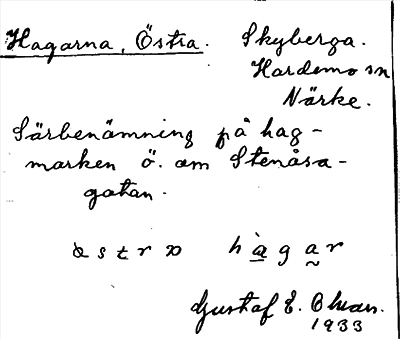 Hagarna, Östra. Skyberga.
Hardemo sn
Närke.
Särbenämning på hag-
marken ö. om Stenåsa-
gatan.
Gustaf E. Ohlson.
1933